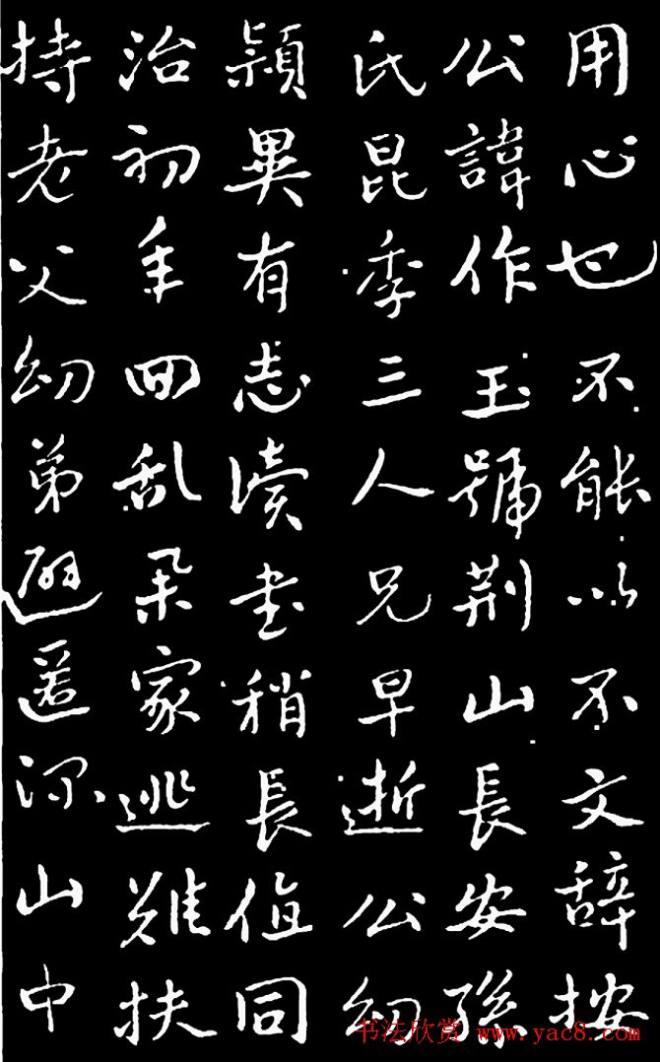 用心也不能以不文辞按
公諱作玉號荆山長安孫
氏昆季三人兄早逝公幼
穎異有志讀書稍長值同
治初年回乱棄家逃難扶
持老父幼弟避匿深山中
书法欣赏 www.yac8.com